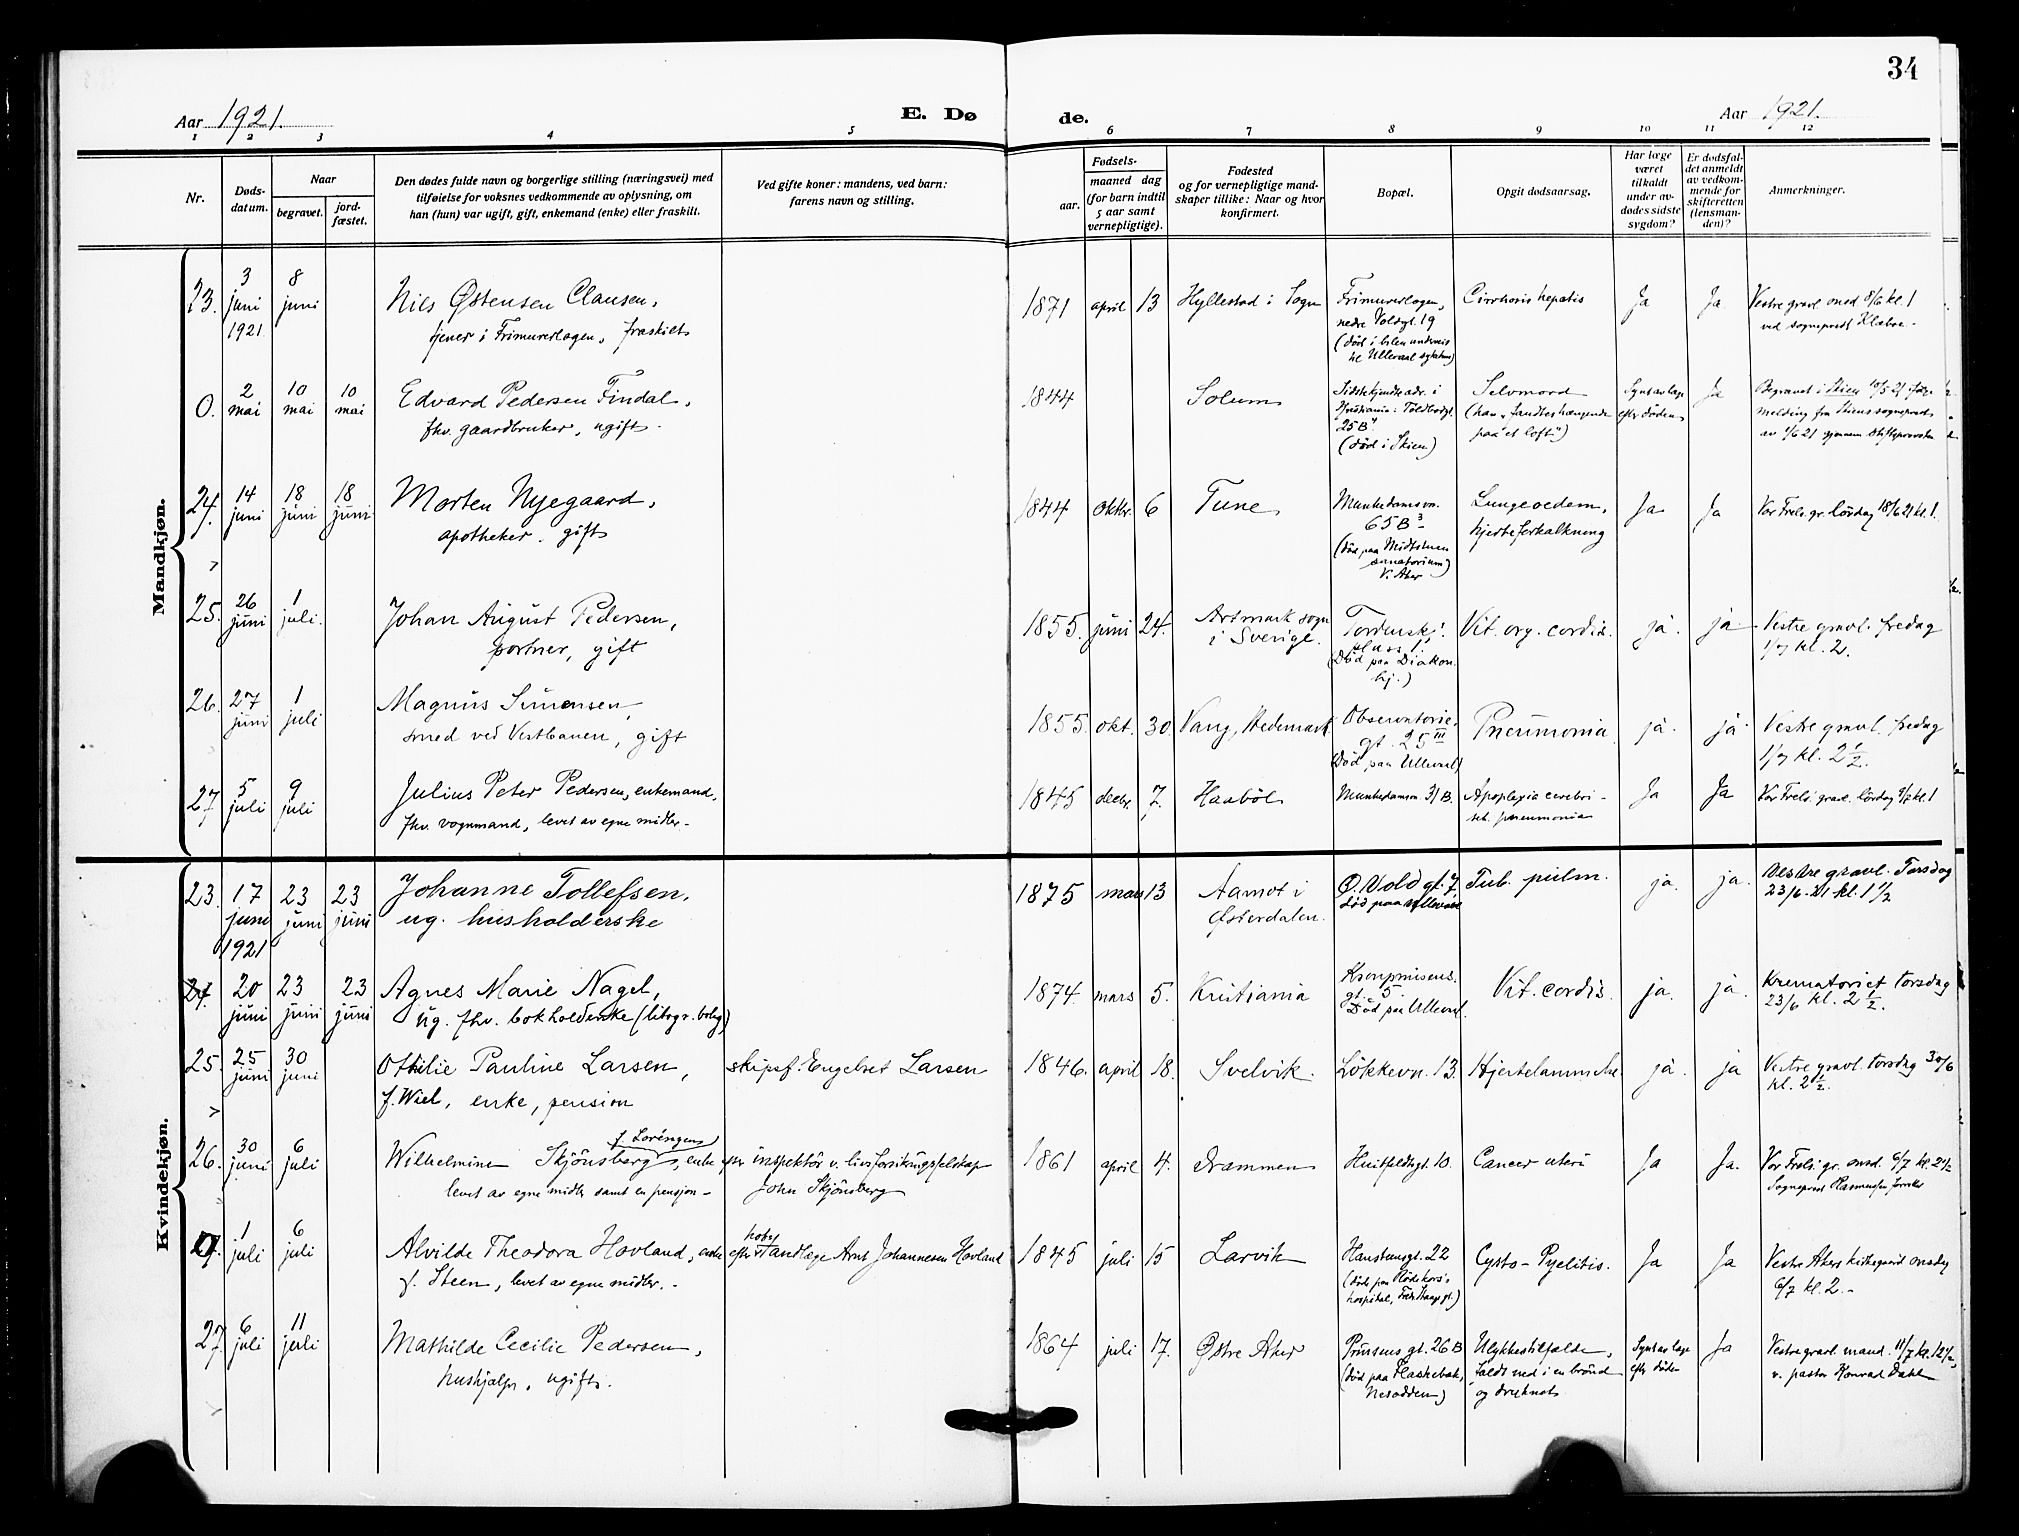 34
Aar 1921. E. Dø de. Aar 1921.
1 2 3 4 5 6 7 8 9 10 11 12
Nr.
Døds-
datum.
Naar
begravet.
jord-
fæstet.
Den dødes fulde navn og borgerlige stilling (næringsvei) med
tilføielse for voksnes vedkommende av oplysning, om
han (hun) var ugift, gift, enkemand (enke) eller fraskilt.
Ved gifte koner: mandens, ved barn:
farens navn og stilling.
Fødsels-
aar.
maaned dag
(for barn indtil
5 aar samt
vernepligtige).
Fødested
og for vernepligtige mand-
skaper tillike: Naar og hvor
konfirmert.
Bopæl.
Opgit dødsaarsag.
Har læge
været
tilkaldt
under av-
dødes sidste
sygdom?
Er dødsfal-
det anmeldt
av vedkom-
mende for
skifteretten
(lensman-
den)?
Anmerkninger.
Mandkjøn.
23. 3 juni 1921 8 juni
Nils Østensen Clausen,
tjener i Frimurerlogen, fraskilt
1871 april 13 Hyllestad i Sogn
Frimurerlogen,
nedre Voldgt. 19
(død i bilen underveis
til Ullevaal sykehus)
Cirrhosis hepatis
Ja Ja
Vestre gravl. onsd. 8/6 kl. 1
ved sogneprest Klaboe.
0. 2 mai 10 mai 10 mai
Edvard Pedersen Findal,
fhv. gaardbruker, ugift.
1844 Solum
Sidstkjendte adr. i
Kristiania: Toldbodgt.
25B"
(død i Skien)
Selvmord
(han "fandtes hængende
paa et loft")
Synt av læge
efter døden
Ja
Begravet i Skien 10/5 21 ifølge
melding fra Skiens sogneprest
av 1/6 21 gjennem stiftsprovsten
24. 14 juni 18 juni 18 juni
Morten Nyegaard,
apotheker. gift
1844 oktbr. 6 Tune
Munkedamsvn.
65B 3
(død paa Midtstuen
sanatorium)
V. Aker
Lungeoedem,
hjerteforkalkning
Ja Ja
Vor Frels. gr. lørdag 18/6 21 kl. 1.
25. 26 juni 1 juli.
Johan August Pedersen,
portner, gift
1855. juni 24.
Artmark sogn
i Sverige.
Tordenskj.
plass 1.
(Død paa Diakon.
hj.)
Vit. org. cordis.
ja. ja.
Vestre gravl. fredag
1/7 kl. 2.
26. 27 juni 1 juli
Magnus Simensen,
smed ved Vestbanen, gift
1855. okt. 30. Vang, Hedemark
Observatorie.
gt. 25 III
(Død paa Ulleval)
Pneumonia.
ja. ja.
Vestre gravl. fredag
1/7 kl. 2 1/2.
27. 5 juli 9 juli
Julius Peter Pedersen, enkemand,
fhv. vognmand, levet av egne midler.
1845 decbr. 7. Haabøl
Munkedamsvn 31B.
Apoplexia cerebri -
seh. pneumonia
Ja Ja
Vor Frels. gravl. lørdag 9/7 kl. 1
Kvindekjøn.
23. 17 juni 1921 23 juni 23 juni
Johanne Tollefsen,
ug. husholderske
1875 mars 13
Aamot i
Østerdalen.
Ø. Voldgt. 7,
død paa Ulleval
Tub. pulm.
ja. ja.
Vestre gravl. Torsdag
23/6. 21 kl. 1 1/2
24. 20 juni 23 juni 23 juni
Agnes Marie Nagel,
ug. fhv. bokholderske (litogr. bolag)
1874. mars 5. Kristiania
Kronprinsens.
gt. 5.
Død paa Ulleval.
Vit. cordis.
ja. ja.
Krematoriet torsdag
23/6 kl. 2 1/2.
25. 25 juni 30 juni
Othilie Pauline Larsen,
f. Wiel, enke, pension
skipsf. Engebret Larsen
1846. april 18. Svelvik. Løkkevn. 13. Hjertelammelse.
ja. ja
Vestre gravl. torsdag 30/6
kl. 2 1/2.
26. 30 juni 6 juli
f. Lorengen
Wilhelmine Skjønsberg, enke efter inspektør v. livsforsikringsselskap
levet av egne midler samt en pensjon - John Skjønsberg
1861 april 4. Drammen Huitfeldtsgt. 10. Cancer uteri
Ja Ja.
Vor Frels. gr. onsd. 6/7 kl. 2 1/2
Sogneprest Rasmussen forretter
0. 1 juli 6 juli
Alvilde Theodora Hovland, enke efter Tandlæge Arnt Johannesen Hovland
f. Steen, levet av egne midler.
1845 juli 15 Larvik
Hansteensgt. 22
(død paa Røde kors's
hospital, Fredr. Stangs gt.)
Cysto-Pyelitis.
Ja Ja
Vestre Akers kirkegaard onsdag
6/7 kl. 2.
27. 6 juli 11 juli
Mathilde Cecilie Pedersen,
hushjælp, ugift.
1864 juli 17. Østre Aker
Prinsens gt. 26B
(død paa Flaskebæk,
Nesodden)
Ulykkestilfælde,
"faldt ned i en brønd
og druknet"
Synt av læge
efter døden
Ja
Vestre gravl. mand. 11/7 kl. 12 1/2,
v. pastor Konrad Dahl